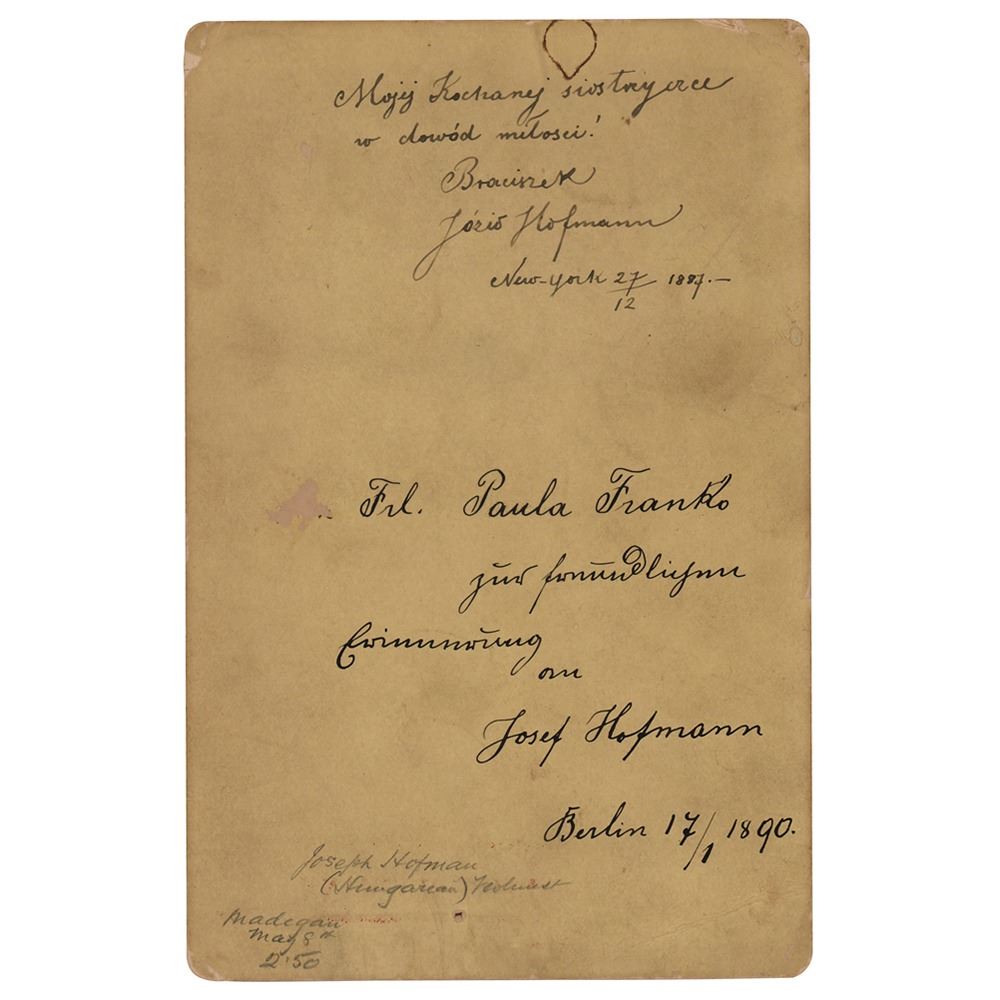 Mojej Kochanej siostrzyczce
w dowód miłości!
Braciszek
Józio Hofmann
New-York 27/12 1887.—
Frl. Paula Franko
zur freundlichen
Erinnerung
an
Josef Hofmann
Berlin 17/1 1890.
Joseph Hofman
(Hungarian) Violinist
Madegan
May 8th
2.50